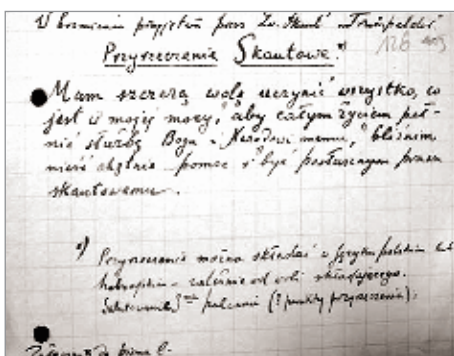 W brzmieniu przyjętem przez Zw. Skaut.
Przyrzeczenie Skautowe.*)
Mam szczerą wolę uczynić wszystko, co
jest w mojej mocy, aby całym życiem peł-
nić służbę Bogu i Narodowi memu, bliźnim
nieść chętnie pomoc i być posłusznym prawu
skautowemu.
*) Przyrzeczenie można składać w języku polskim lub
zależnie od woli składającego.
palcami (3 punkty przyrzeczenia).